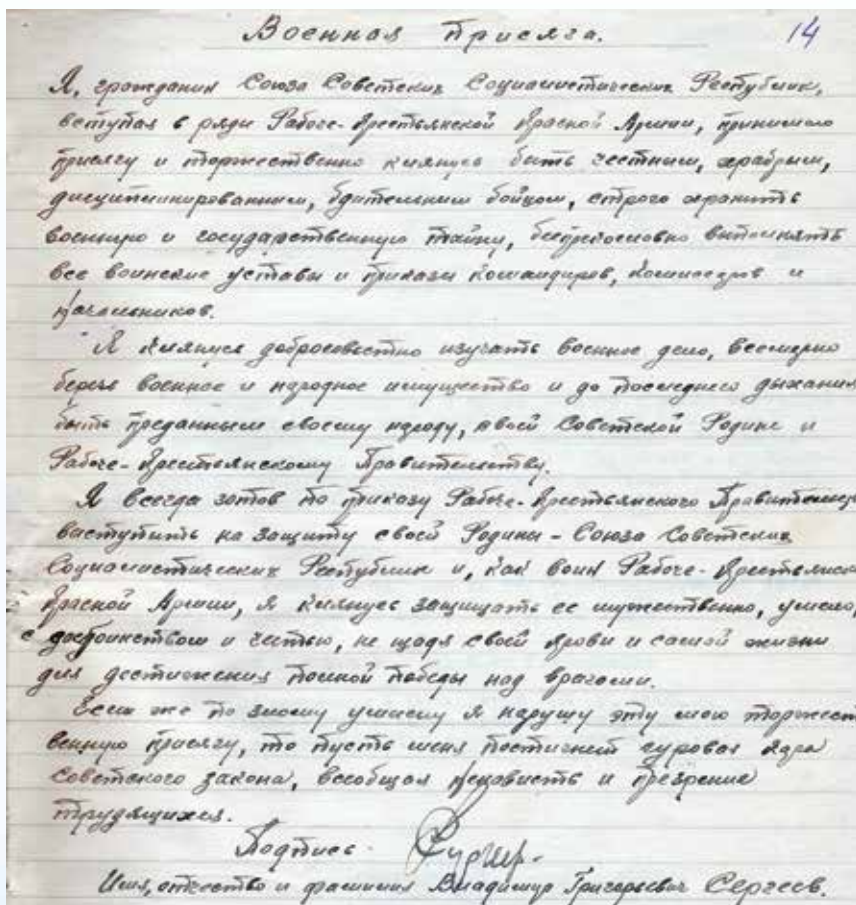 Военная присяга. 14
Я, гражданин Союза Советских Социалистических Республик,
вступая в ряды Рабоче-Крестьянской Красной Армии, принимаю
присягу и торжественно клянусь быть честным, храбрым,
дисциплинированным, бдительным бойцом, строго хранить
военную и государственную тайну, беспрекословно выполнять
все воинские уставы и приказы командиров, комиссаров и
начальников.
Я клянусь добросовестно изучать военное дело, всемерно
беречь военное и народное имущество и до последнего дыхания
быть преданным своему народу, своей Советской Родине и
Рабоче-Крестьянскому Правительству.
Я всегда готов по приказу Рабоче-Крестьянского Правительства
выступить на защиту своей Родины - Союза Советских
Социалистических Республик и, как воин Рабоче-Крестьянской
Красной Армии, я клянусь защищать ее мужественно, умело,
с достоинством и честью, не щадя своей крови и самой жизни
для достижения полной победы над врагами.
Если же по злому умыслу я нарушу эту мою торжест
венную присягу, то пусть меня постигнет суровая кара
Советского закона, всеобщая ненависть и презрение
трудящихся.
Подпись -
Имя, отчество и фамилия Владимир Григорьевич Сергеев.